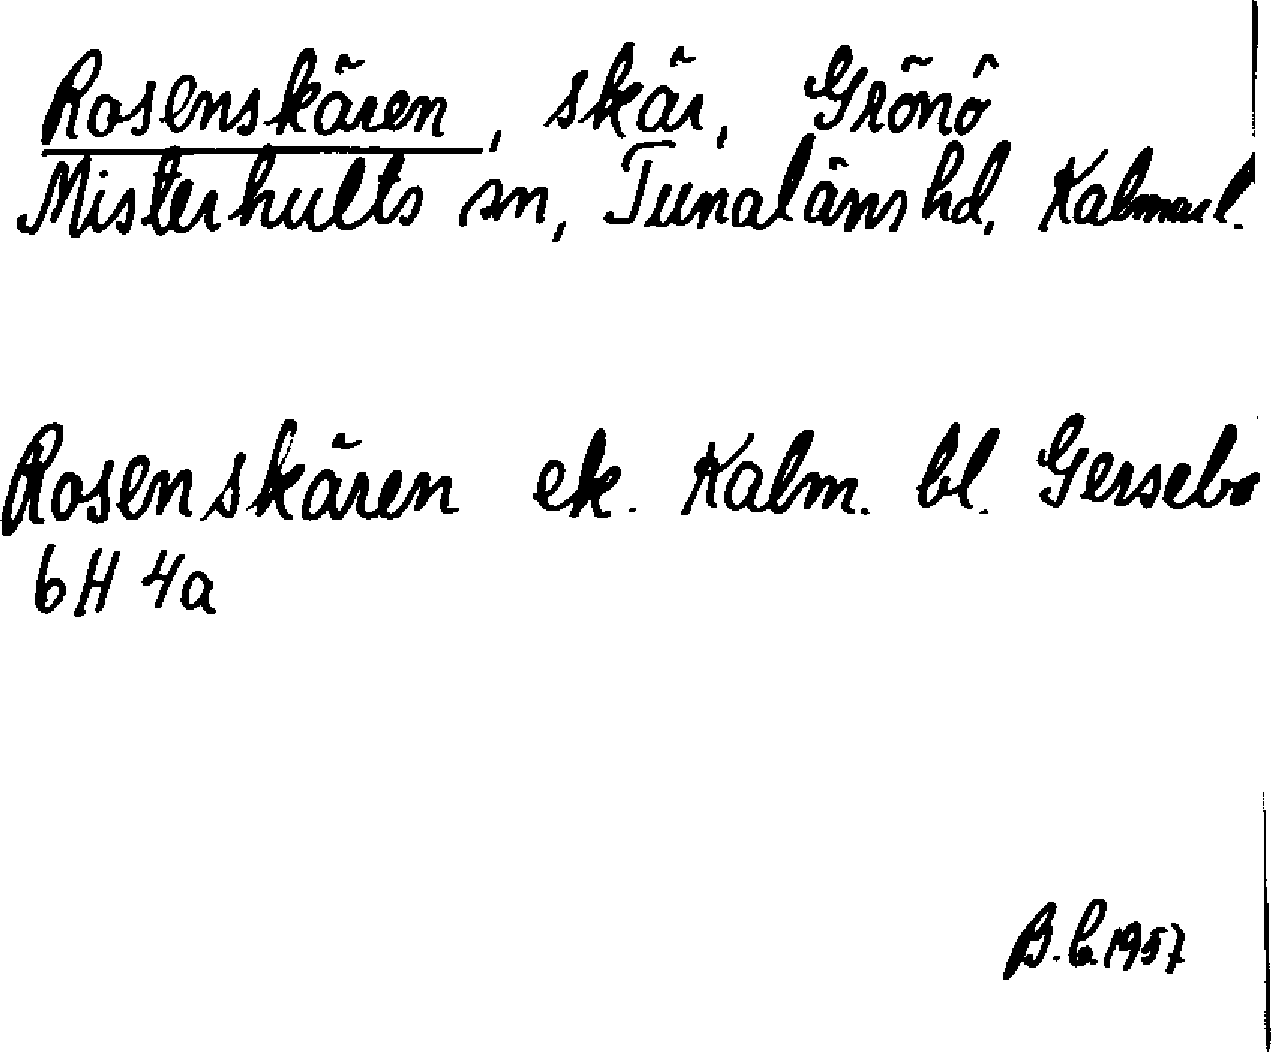 Rosenskären, skär, Grönö
Misterhults sn, Tunaläns hd. Kalmar l.
Rosenskären ek. Kalm. bl. Gersebo
6H 4a
B. L. 1957